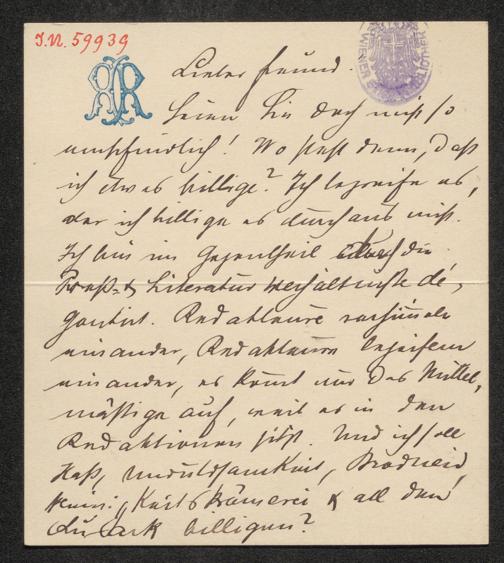 I.N. 59939
Lieber Freund.
Seien Sie doch nicht so
empfindlich! Wo steht denn, daß
ich etwas billige? Ich begreife es,
aber ich billige es durchaus nicht.
Ich bin im Gegentheil durch die
Preß- & Literaturverhältnisse dé-
goutirt. Redakteure verhimmeln
einander, Redakteure begeifern
einander, es kommt nur das Mittel-
mäßige auf, weil es in den
Redaktionen sitzt. Und ich soll
Haß, Unduldsamkeit, Brodneid,
Krämerei & all den
billigen?